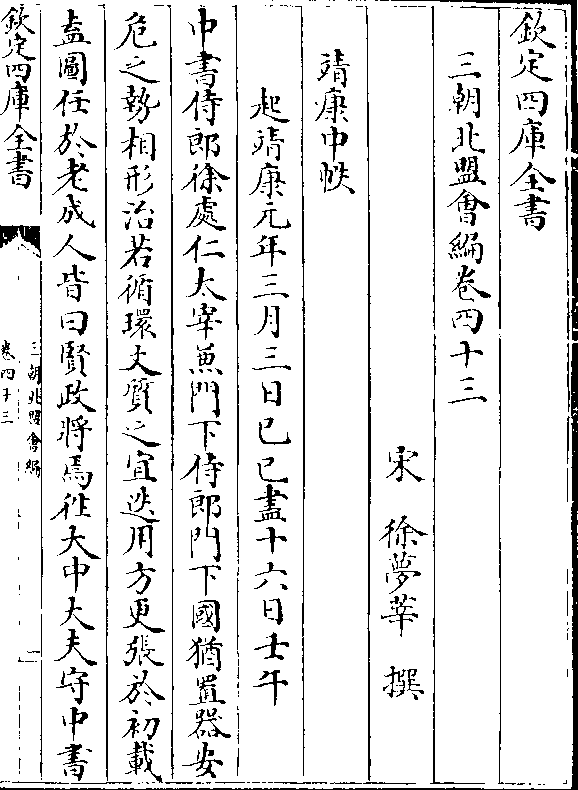 欽定四庫全書
三朝北盟會編卷四十三
宋 徐夢莘 撰
靖康中帙
起靖康元年三月三日己巳盡十六日壬午
中書侍郎徐處仁太宰兼門下侍郎門下國猶置器安
危之勢相形治若循環文質之宜迭用方更張於初載
盍圖任於老成人皆曰賢政將焉徃大中大夫守中書
欽定四庫全書
三朝北盟會編
卷四十三
一